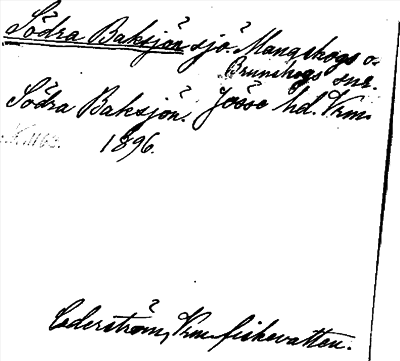 Södra Baksjön sjö. Mangskogs o.
Brunskogs snr.
Södra Baksjön. Jösse hd. Vrm.
1896.
Cederström, Vrm fiskevatten.